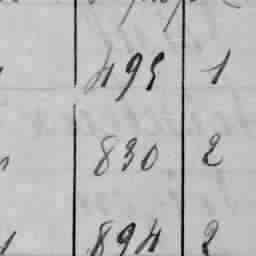 495 1
830 2
894 2